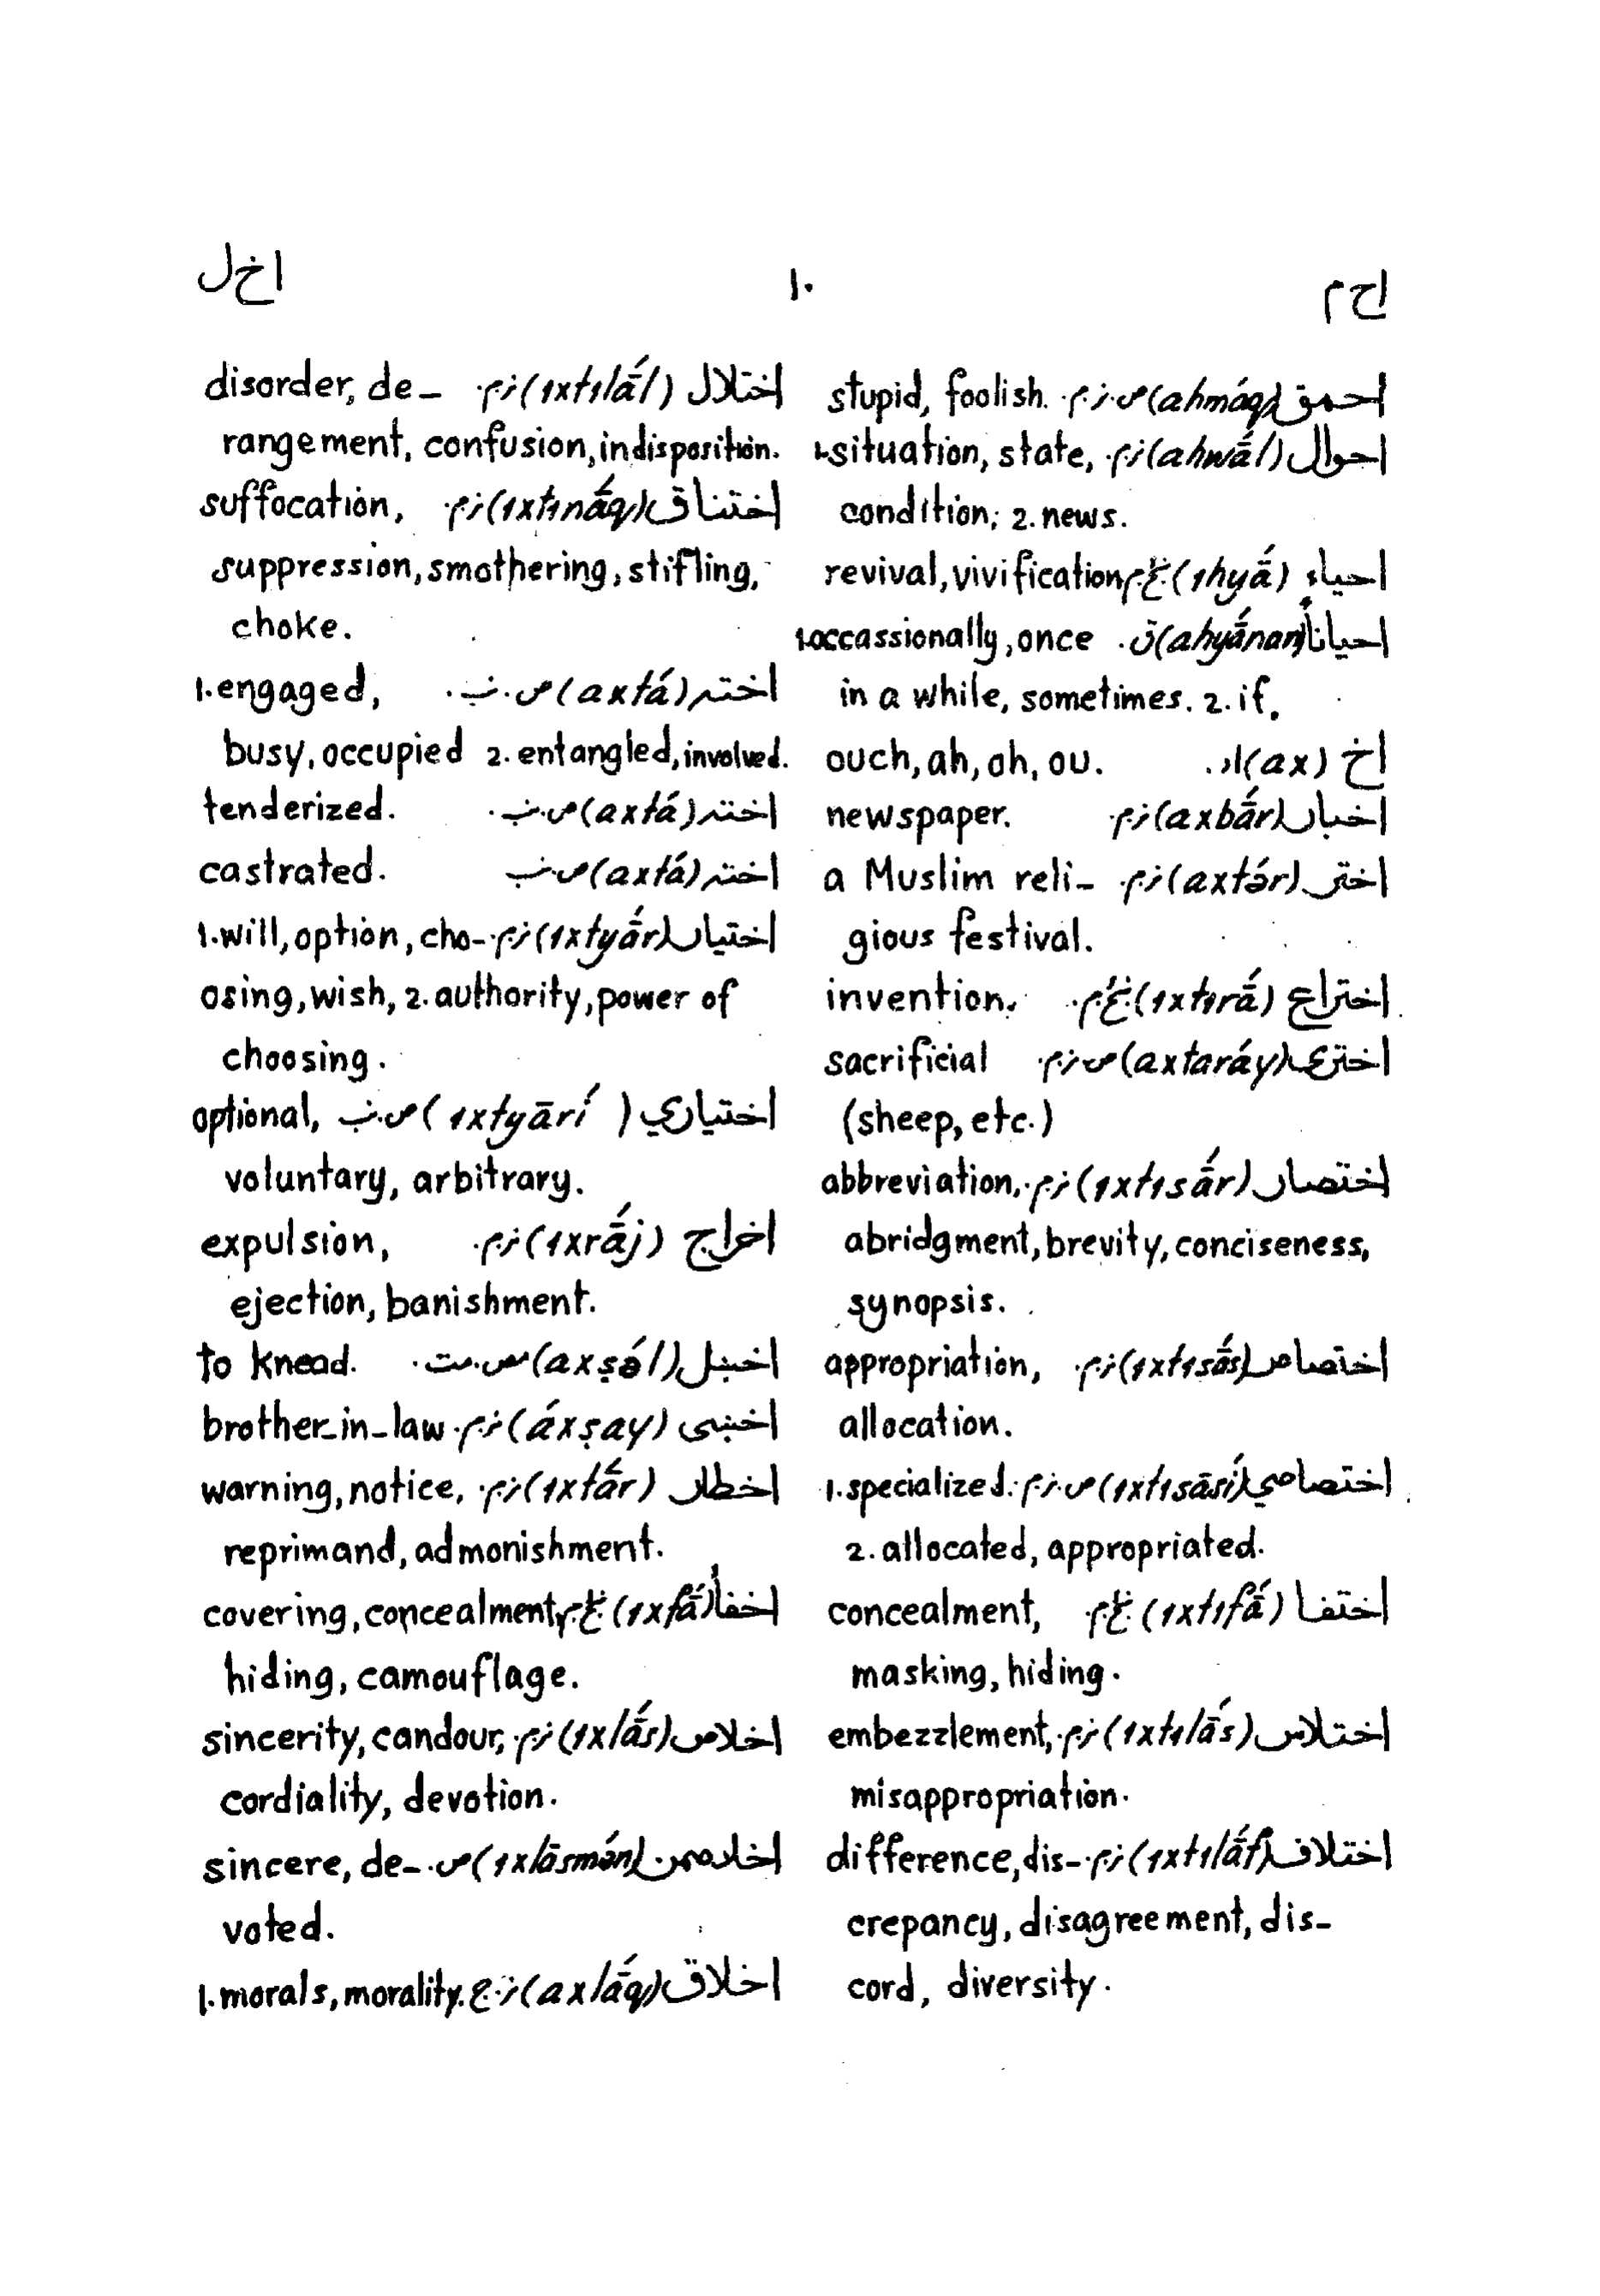 احم
۱۰
اخل
احمق (ahmáq) ص.ن.م. stupid, foolish.
احوال (ahwā́l) ن.م. 1. situation, state,
condition; 2. news.
احیاء (ıhyā́) غ.م. revival, vivification
احیاناً (ahyā́nan) ق. 1. occassionally, once
in a while, sometimes. 2. if.
اخ (ax) ا.ر. ouch, ah, oh, ou.
اخبار (axbā́r) ن.م. newspaper.
اختر (axtə́r) ن.م. a Muslim reli-
gious festival.
اختراع (ıxtırā́) غ.م. invention.
اخترۍ (axtaráy) ص.ن.م. sacrificial
(sheep, etc.)
اختصار (ıxtısā́r) ن.م. abbreviation,
abridgment, brevity, conciseness,
synopsis.
اختصاص (ıxtısā́s) ن.م. appropriation,
allocation.
اختصاصي (ıxtısāsí) ص.ن.م. 1. specialized.
2. allocated, appropriated.
اختفا (ıxtıfā́) غ.م. concealment,
masking, hiding.
اختلاس (ıxtılā́s) ن.م. embezzlement,
misappropriation.
اختلاف (ıxtılā́f) ن.م. difference, dis-
crepancy, disagreement, dis-
cord, diversity.
اختلال (ıxtılā́l) ن.م. disorder, de-
rangement, confusion, indisposition.
اختناق (ıxtınā́q) ن.م. suffocation,
suppression, smothering, stifling,
choke.
اخته (axtá) ص.ب. 1. engaged,
busy, occupied 2. entangled, involved.
اخته (axtá) ص.ب. tenderized.
اخته (axtá) ص.ب. castrated.
اختیار (ıxtyā́r) ن.م. 1. will, option, cho-
osing, wish, 2. authority, power of
choosing.
اختیاري (ıxtyārí) ص.ب. optional,
voluntary, arbitrary.
اخراج (ıxrā́j) ن.م. expulsion,
ejection, banishment.
اخښل (axṣə́l) مص.مت. to knead.
اخښی (áxṣay) ن.م. brother-in-law
اخطار (ıxtā́r) ن.م. warning, notice,
reprimand, admonishment.
اخفأ (ıxfā́) غ.م. covering, concealment,
hiding, camouflage.
اخلاص (ıxlā́s) ن.م. sincerity, candour,
cordiality, devotion.
اخلاصمن (ıxlāsmə́n) ص. sincere, de-
voted.
اخلاق (axlā́q) ن.ج. 1. morals, morality.